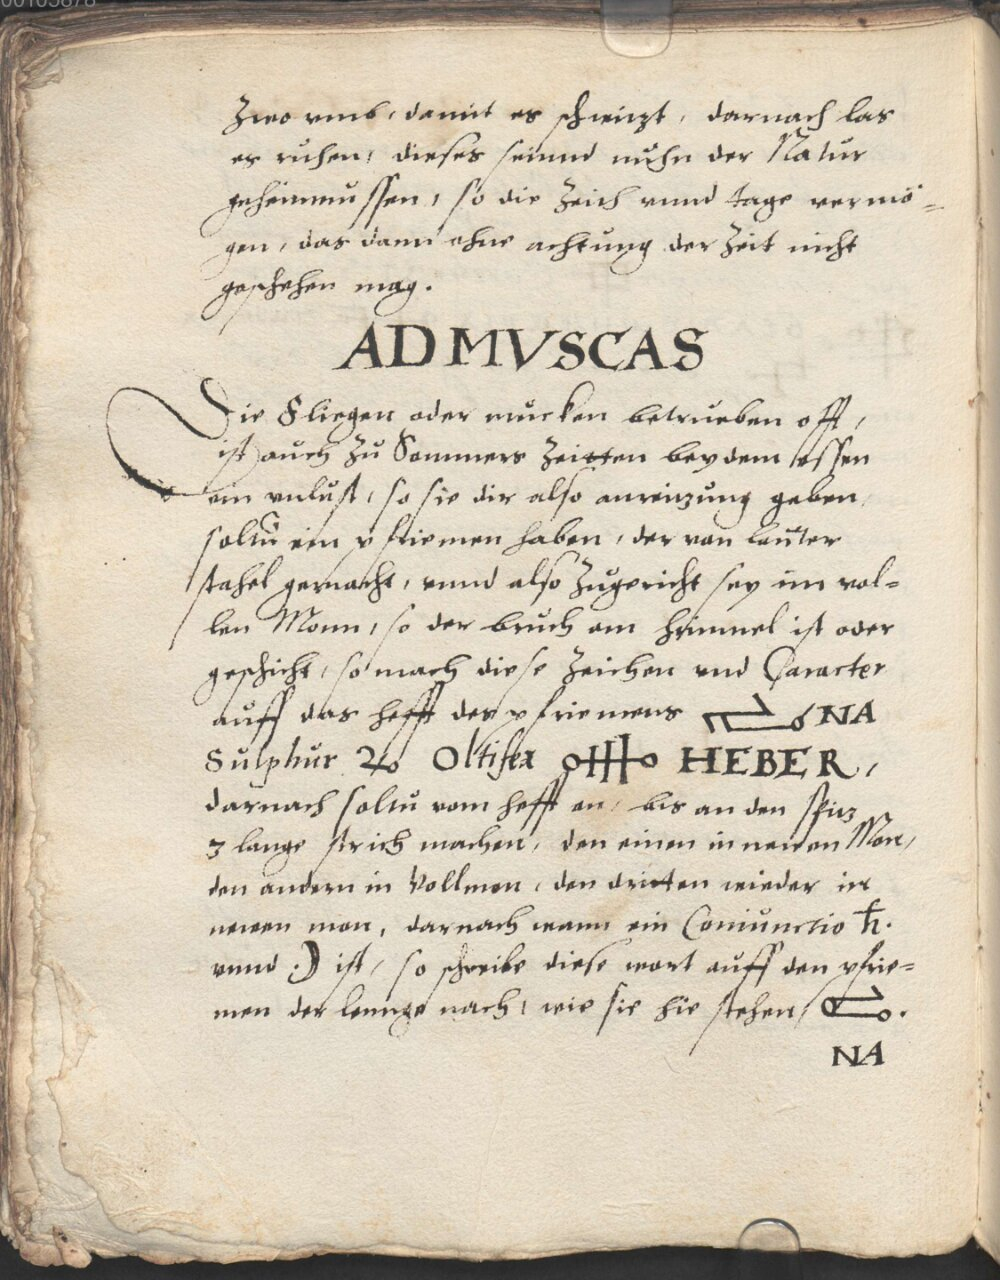 Zwo vmb, damit es schwitzt, darnach las
es ruhen, dieses seinnd nuhn der Natur
geheimnussen, so die Zeich vnnd tage vermö=
gen, das dann ohne achtung der Zeit nicht
geschehen mag.
AD MVSCAS
Die Fliegen oder mucken betrueben offt,
ist auch Zu Sommers Zeitten bey dem essen
ein vnlust, so sie dir also anreitzung geben,
soltu ein pfriemen haben, der von lauter
stahel gemacht, vnnd also Zugericht sey im vol=
len Monn, so der bruch am himmel ist oder
geschicht, so mach diese Zeichen vnd Caracter
auff das hefft des pfriemens NA
Sulphur Oltifex HEBER,
darnach soltu vom hefft an, bis an den spitz
3 lange strich machen, den einen in newen Mon,
den andern in Vollmon, den dritten wieder im
newen mon, darnach wann ein Coniunctio ♄.
vnnd ☽ ist, so schreibe diese wort auff den pfrie=
men der lennge nach, wie sie hie stehen,
NA